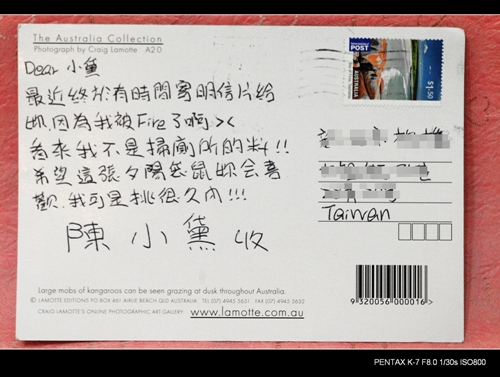 The Australia Collection
Photograph by Craig Lamotte A20
POST
AUSTRALIA
$1.50
Dear 小黛
最近終於有時間寄明信片給
妳,因為我被Fire了啊><
看來我不是掃廁所的料!!
希望這張夕陽袋鼠妳會喜
歡,我可是挑很久ㄋㄟ!!!
陳小黛 收
Taiwan
Large mobs of kangaroos can be seen grazing at dusk throughout Australia.
© LAMOTTE EDITIONS PO BOX 461 AIRLIE BEACH QLD AUSTRALIA TEL (07) 4945 5631 FAX (07) 4945 5632
CRAIG LAMOTTE'S ONLINE PHOTOGRAPHIC ART GALLERY: www.lamotte.com.au
9 320056 000016 >
PENTAX K-7 F8.0 1/30s ISO800